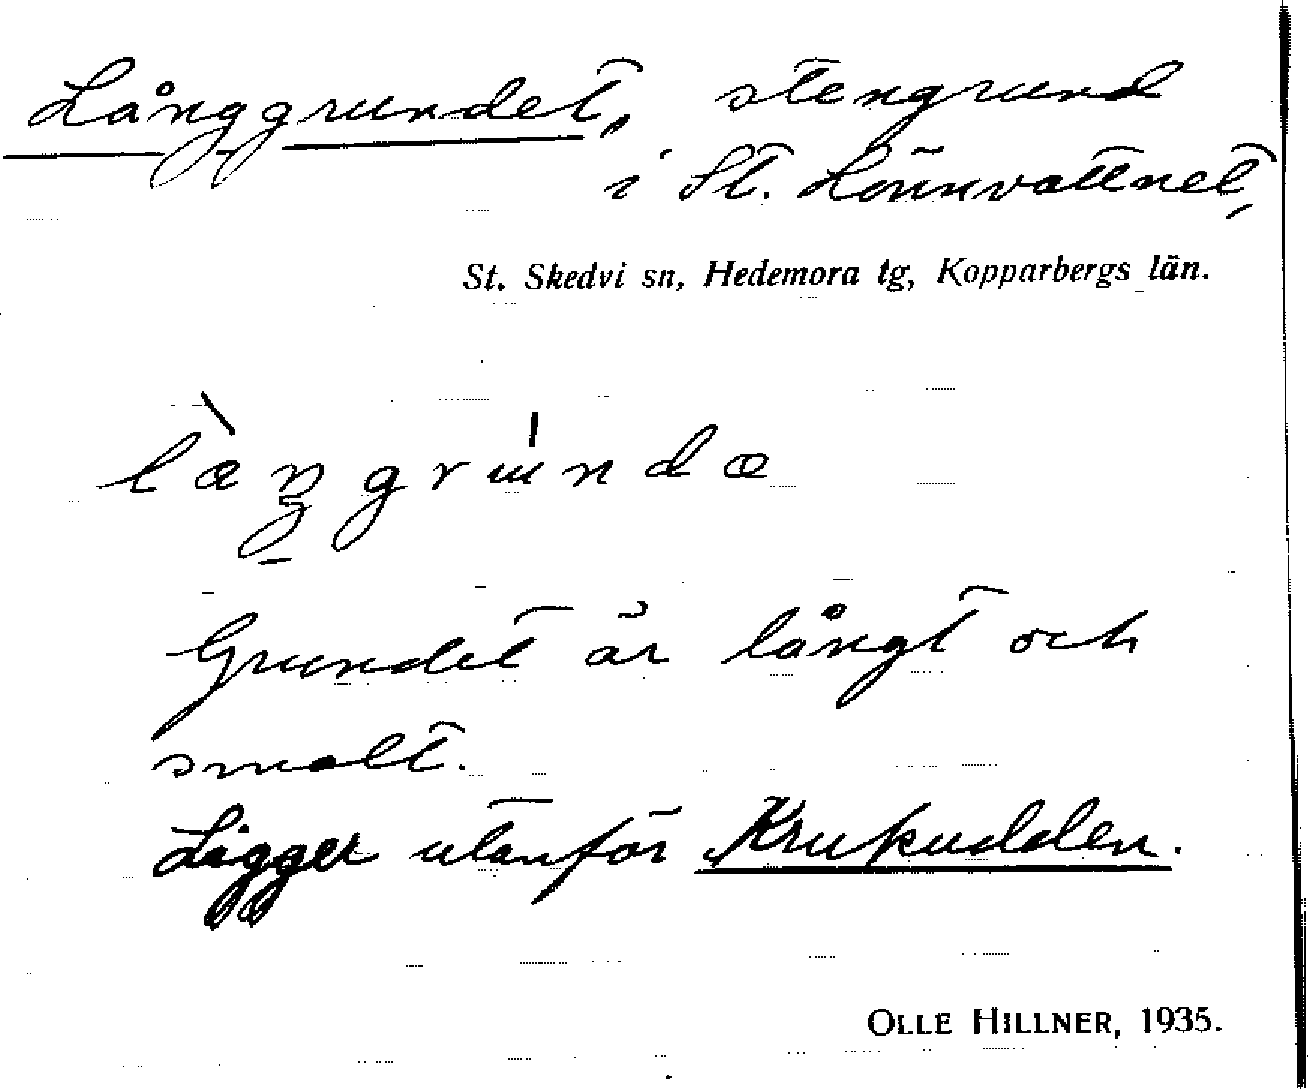 Långgrundet, stengrund
i St. Lönnvattnet,
St. Skedvi sn, Hedemora tg, Kopparbergs län.
Grundet är långt och
smalt.
Ligger utanför Krukudden.
OLLE HILLNER, 1935.